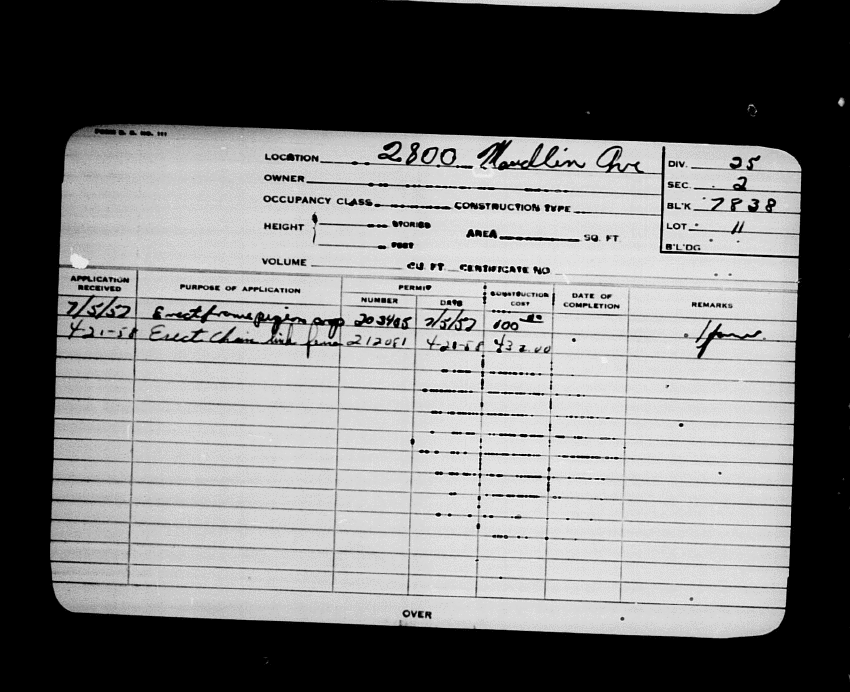 FORM B. B. NO. 111
LOCATION 2800 Maudlin Ave
DIV. 25
OWNER
SEC. 2
OCCUPANCY CLASS CONSTRUCTION TYPE
BL'K 7838
HEIGHT { STORIES
FEET
AREA SQ. FT.
LOT 11
B'L'DG
VOLUME CU. FT. CERTIFICATE NO.
APPLICATION RECEIVED PURPOSE OF APPLICATION PERMIT NUMBER DATE CONSTRUCTION COST DATE OF COMPLETION REMARKS
7/5/57 Erect frame pigeon 203485 7/5/57 100
4-21-58 Erect Chain link fence 212081 4-21-58 432.00
OVER